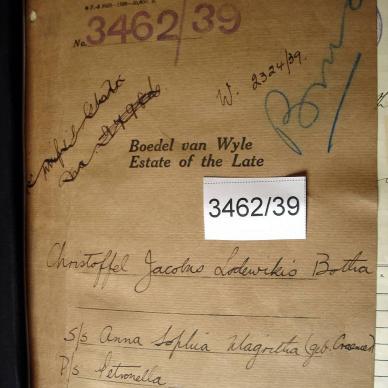 No. 3462/39
W. 2324/39.
Boedel van Wyle
Estate of the Late
3462/39
Christoffel Jacobus Lodewikis Botha
S/s Anna Sophia Magritha (geb.
P/s Petronella